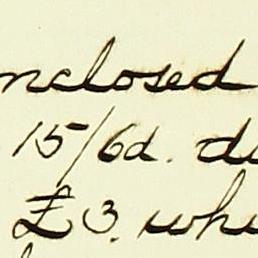 nclosed
15/6d. d
£3. wh